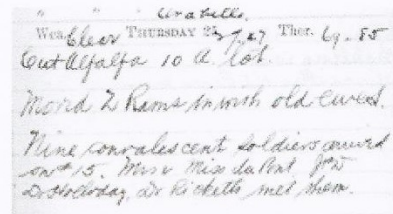 " " " Arabelle.
Wea. Clear THURSDAY 2 Ther. 69. 85
Cut Alfalfa 10 A. lot.
Moved 2 Rams in with old ewes.
Nine convalescent soldiers arrived
on #15. Mrs & Miss du Pont,
Dr Holloday, Dr Ricketts met them.